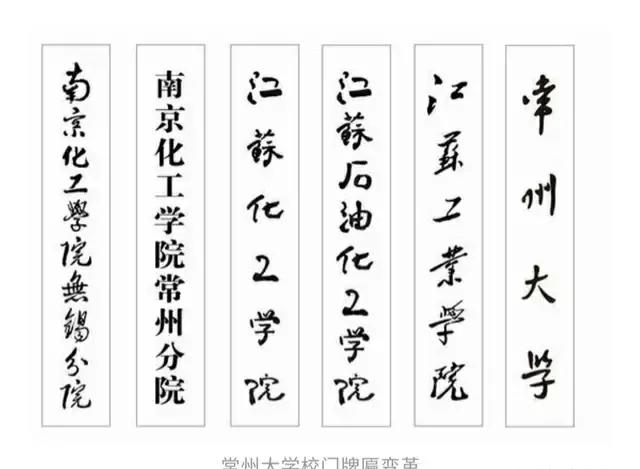 南京化工學院無錫分院
南京化工学院常州分院
江蘇化工学院
江蘇石油化工学院
江蘇工業學院
常州大学
常州大学校门牌匾变革